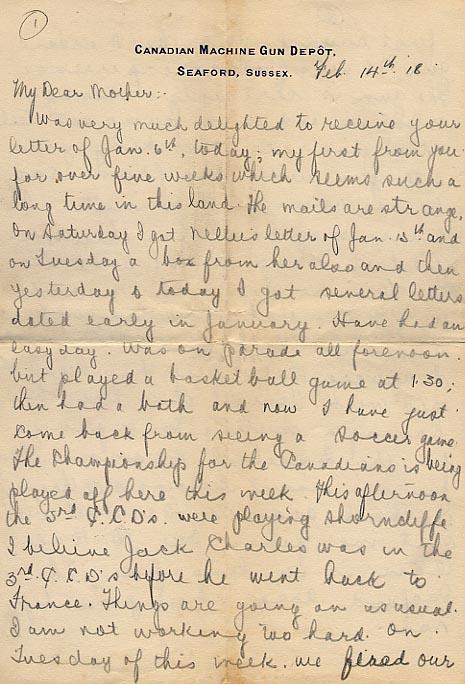 1
CANADIAN MACHINE GUN DEPÔT,
SEAFORD, SUSSEX. Feb. 14th. 18.
My Dear Mother:-
Was very much delighted to receive your
letter of Jan. 6th, today; my first from you
for over five weeks which seems such a
long time in this land. The mails are strange,
on Saturday I got Nellie's letter of Jan. 13th and
on Tuesday a box from her also and then
yesterday & today I got several letters
dated early in January. Have had an
easy day. Was on parade all forenoon.
but played a basketball game at 1.30;
then had a bath and now I have just
come back from seeing a soccer game.
The Championship for the Canadians is being
played off here this week. This afternoon
the 3rd C.C.D's. were playing Shorncliffe
I believe Jack Charles was in the
3rd C.C.D's before he went back to
France. Things are going on as usual.
I am not working too hard. On
Tuesday of this week. we fired our